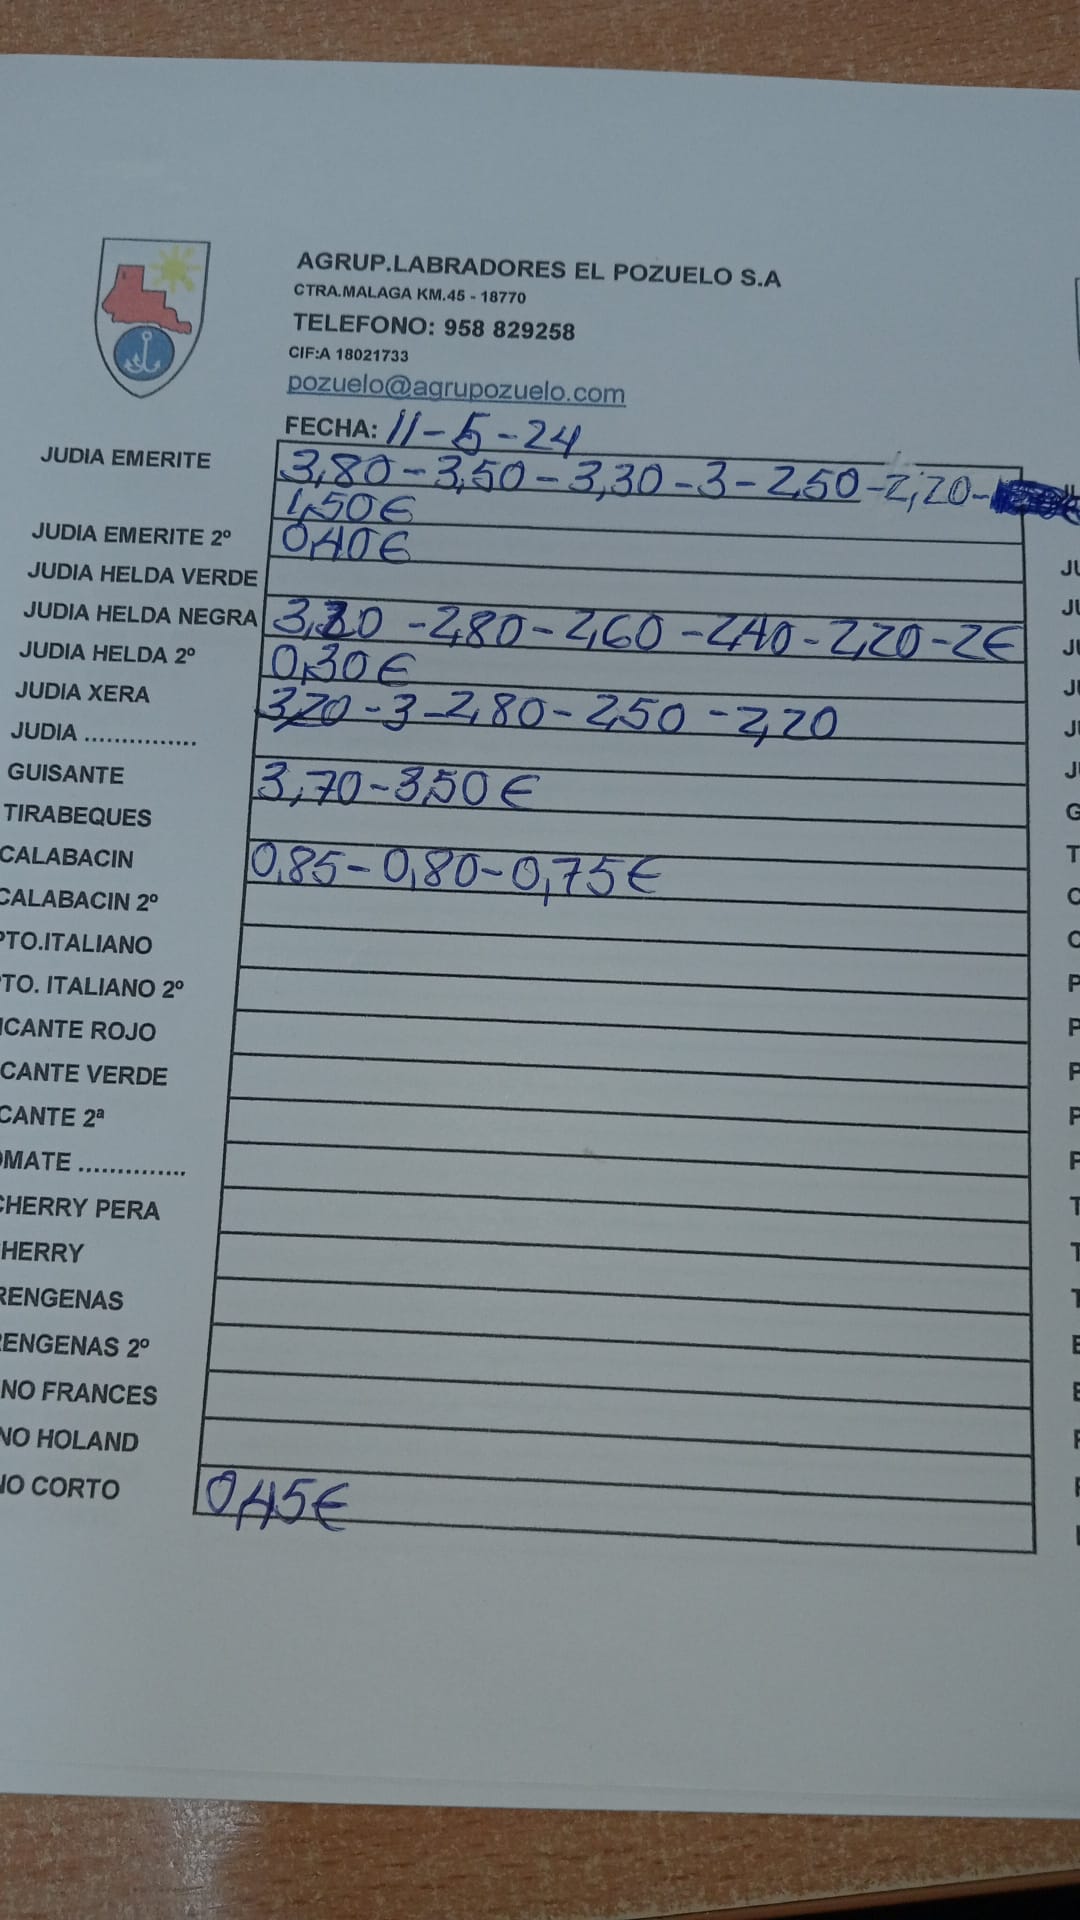 AGRUP.LABRADORES EL POZUELO S.A
CTRA.MALAGA KM.45 - 18770
TELEFONO: 958 829258
CIF:A 18021733
pozuelo@agrupozuelo.com
FECHA: 11-5-24
JUDIA EMERITE 3,80-3,50-3,30-3-2,50-2,20-
1,50€
JUDIA EMERITE 2º 0,40€
JUDIA HELDA VERDE
JUDIA HELDA NEGRA -2,80-2,60-2,40-2,20-2€
JUDIA HELDA 2º 0,30€
JUDIA XERA 3,20-3-2,80-2,50-2,20
JUDIA ...............
GUISANTE 3,70-3,50€
TIRABEQUES
CALABACIN 0,85-0,80-0,75€
CALABACIN 2º
PTO.ITALIANO
TO. ITALIANO 2º
ICANTE ROJO
CANTE VERDE
CANTE 2ª
OMATE ..............
CHERRY PERA
HERRY
RENGENAS
RENGENAS 2º
NO FRANCES
NO HOLAND
NO CORTO 0,45€